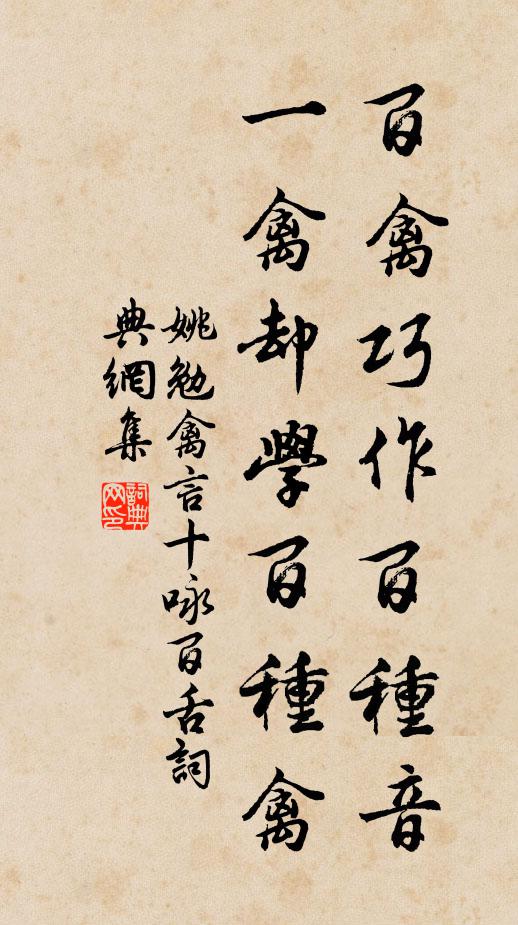 百禽巧作百種音
一禽却學百種禽
姚勉禽言十咏百舌詞
典網集
詞典
网印